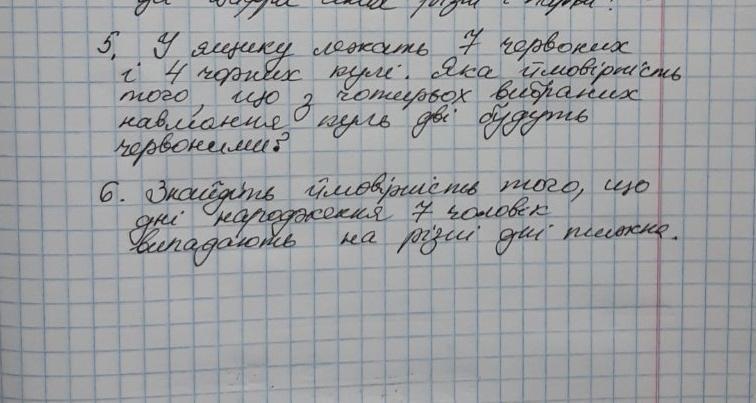 5. У ящику лежать 7 червоних
і 4 чорних кулі. Яка ймовірність
того, що з чотирьох вибраних
навмання куль дві будуть
червоними?
6. Знайдіть ймовірність того, що
дні народження 7 чоловік
випадають на різні дні тижня.